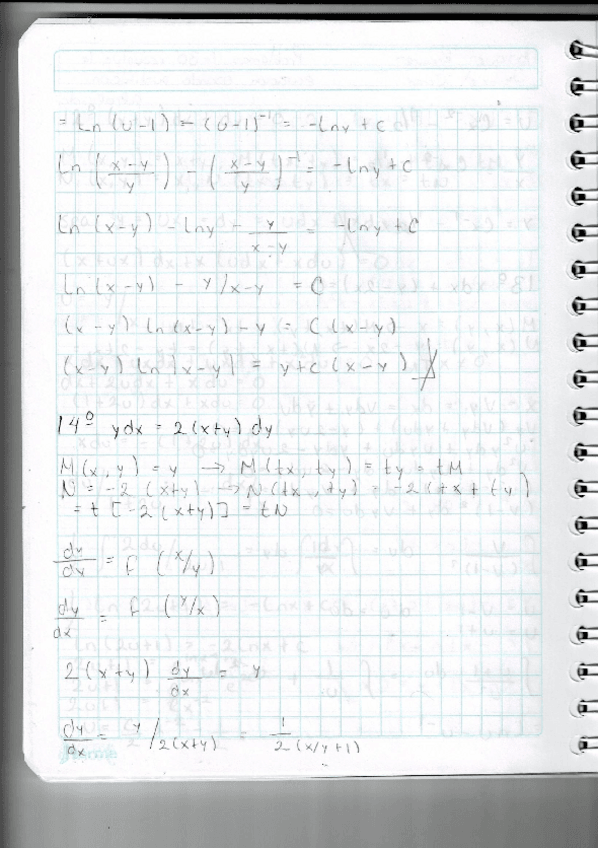 = Ln (u-1) - (u-1)⁻¹ = -Lny + c
Ln ((x-y)/y) - ((x-y)/y)⁻¹ = -Lny + c
Ln (x-y) - Lny - y/(x-y) = -Lny + C
Ln (x-y) - y/x-y = C
(x-y) Ln (x-y) - y = C (x-y)
(x-y) Ln |x-y| = y+c (x-y)
14º ydx = 2(x+y) dy
M(x,y) = y → M(tx, ty) = ty = tM
N = -2 (x+y) → N(tx, ty) = -2(tx + ty)
= t [-2(x+y)] = tN
dx/dy = F (x/y)
dy/dx = F (y/x)
2(x+y) dy/dx = y
dy/dx = y/2(x+y) = 1/2(x/y+1)